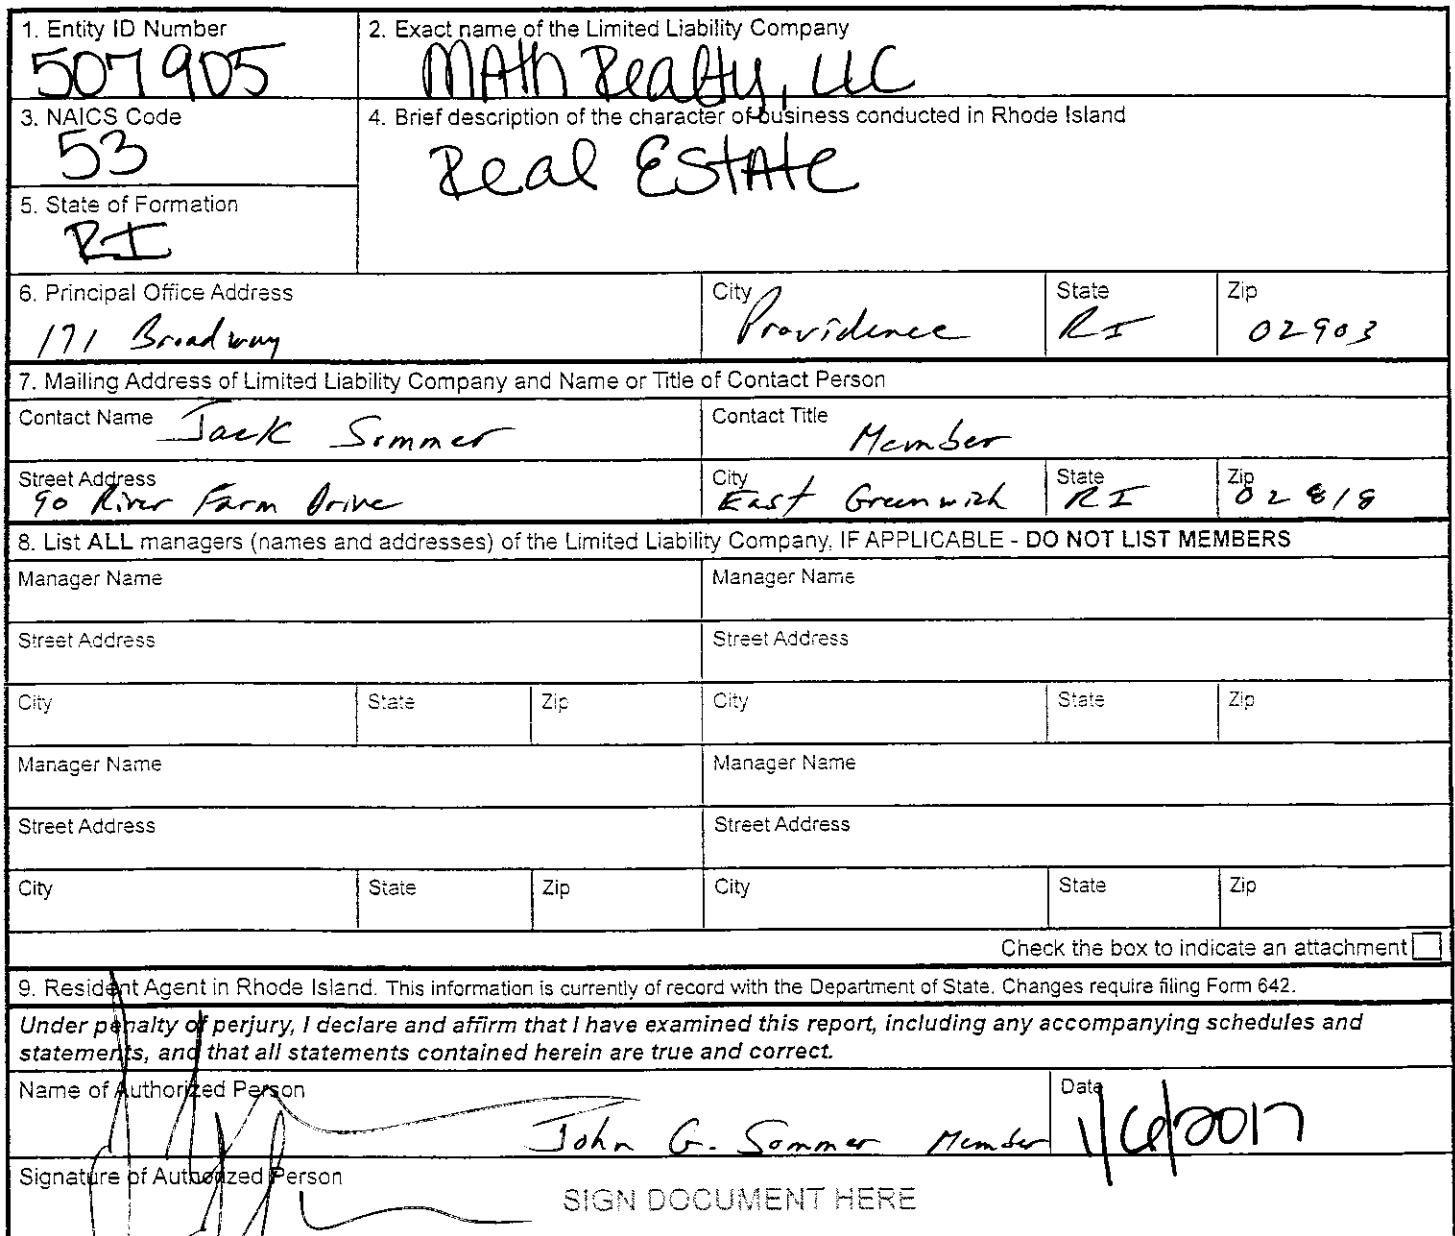 1. Entity ID Number
507905
2. Exact name of the Limited Liability Company
MAth Realty, LLC
3. NAICS Code
53
4. Brief description of the character of business conducted in Rhode Island
Real EStAte
5. State of Formation
RI
6. Principal Office Address
171 Broadway
City
Providence
State
RI
Zip
02903
7. Mailing Address of Limited Liability Company and Name or Title of Contact Person
Contact Name Jack Sommer
Contact Title Member
Street Address
90 River Farm Drive
City
East Greenwich
State
RI
Zip
02818
8. List ALL managers (names and addresses) of the Limited Liability Company, IF APPLICABLE - DO NOT LIST MEMBERS
Manager Name
Manager Name
Street Address
Street Address
City State Zip City State Zip
Manager Name
Manager Name
Street Address
Street Address
City State Zip City State Zip
Check the box to indicate an attachment
9. Resident Agent in Rhode Island. This information is currently of record with the Department of State. Changes require filing Form 642.
Under penalty of perjury, I declare and affirm that I have examined this report, including any accompanying schedules and
statements, and that all statements contained herein are true and correct.
Name of Authorized Person
John G. Sommer Member
Date
1/6/2017
Signature of Authorized Person
SIGN DOCUMENT HERE